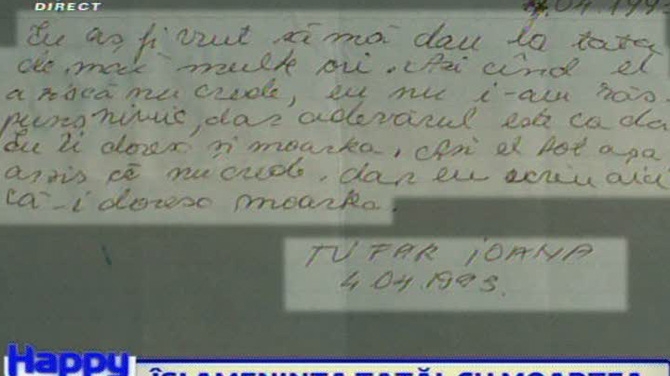 DIRECT
.04.199
Eu aș fi vrut să mă dau la tata
de mai multe ori. Azi cînd el
a zis că nu crede, eu nu i-am răs
puns nimic, dar adevărul este ca da
Eu îi doresc și moartea. Azi el tot așa
a zis că nu crede. dar eu scriu aici
că-i doresc moartea.
TUFAR IOANA
4.04.1993.
Happy
ÎȘI AMENINȚA TATĂL CU MOARTEA